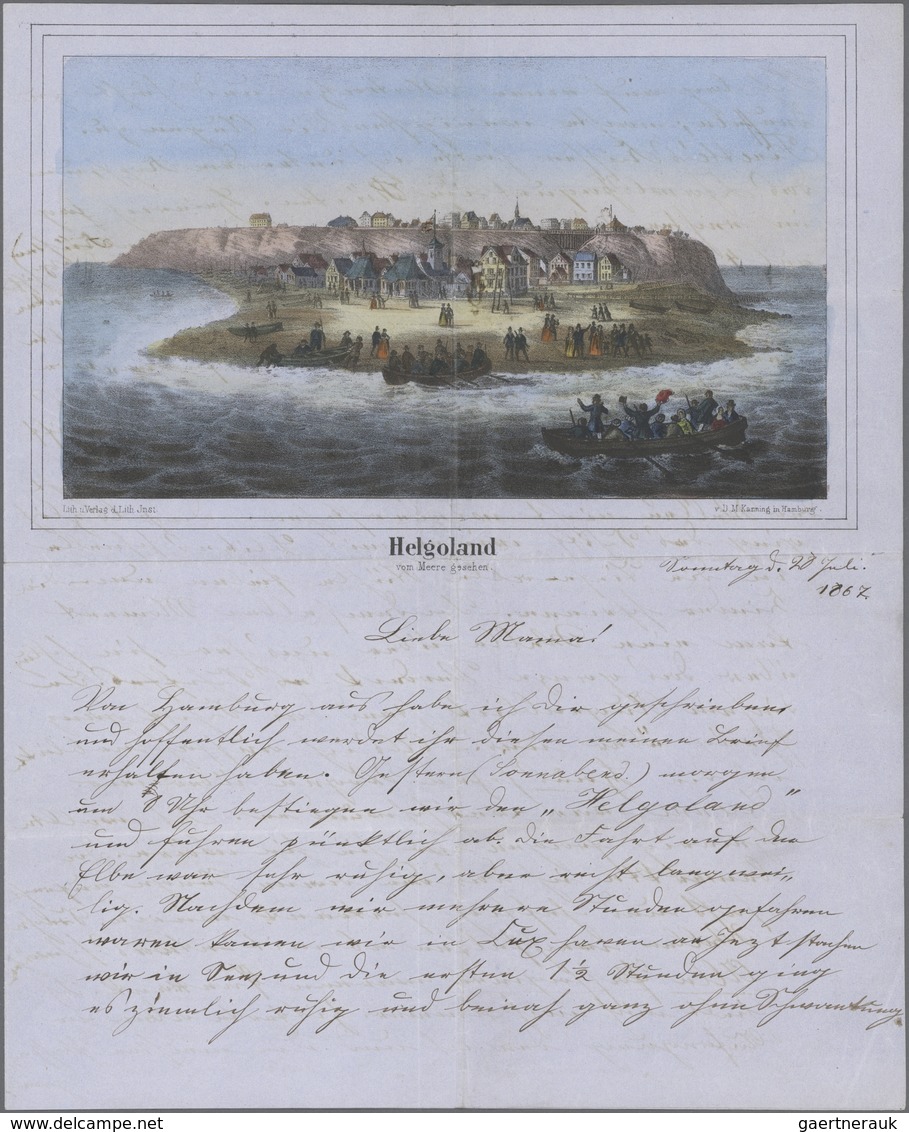 Lith. u. Verlag d. Lith. Inst.
v. D. M. Kanning in Hamburg.
Helgoland
vom Meere gesehen.
Sonntag d. 28 Juli.
1867
Liebe Mama!
Von Hamburg aus habe ich Dir geschrieben,
und hoffentlich werdet ihr diesen meinen Brief
erhalten haben. Gestern (Sonnabend) morgen
um 8 Uhr bestiegen wir den „Helgoland"
und fuhren pünktlich ab. Die Fahrt auf der
Elbe war sehr ruhig, aber recht langwei„
lig. Nachdem wir mehrere Stunden gefahren
waren kamen wir in Cuxhaven an Jezt stachen
wir in See, und die ersten 1½ Stunden ging
es ziemlich ruhig und beinah ganz ohne Schwankung
delcampe.net
gaertnerauk